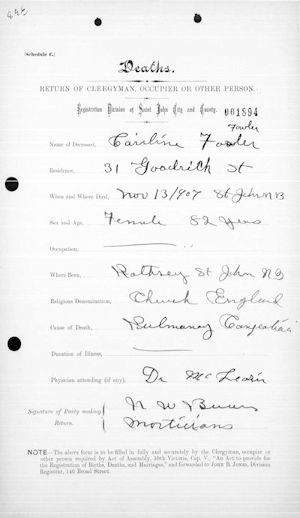 (Schedule C.)
Deaths.
RETURN OF CLERGYMAN, OCCUPIER OR OTHER PERSON.
Registration Division of Saint John City and County. 001894
Fowler
Name of Deceased, Caroline Fowler
Residence, 31 Goodrich St
When and Where Died, Nov 13/907 St John NB
Sex and Age, Female 82 years
Occupation,
Where Born, Rothsey St John NB
Religious Denomination, Church England
Cause of Death, Pulmonary Congestion
Duration of Illness,
Physician attending (if any), Dr
Signature of Party making N W
Return. Morticians
NOTE—The above form is to be filled in fully and accurately by the Clergyman, occupier or
other person required by Act of Assembly, 50th Victoria, Cap. V., "An Act to provide for
the Registration of Births, Deaths, and Marriages," and forwarded to JOHN B. JONES, Division
Registrar, 140 Broad Street.